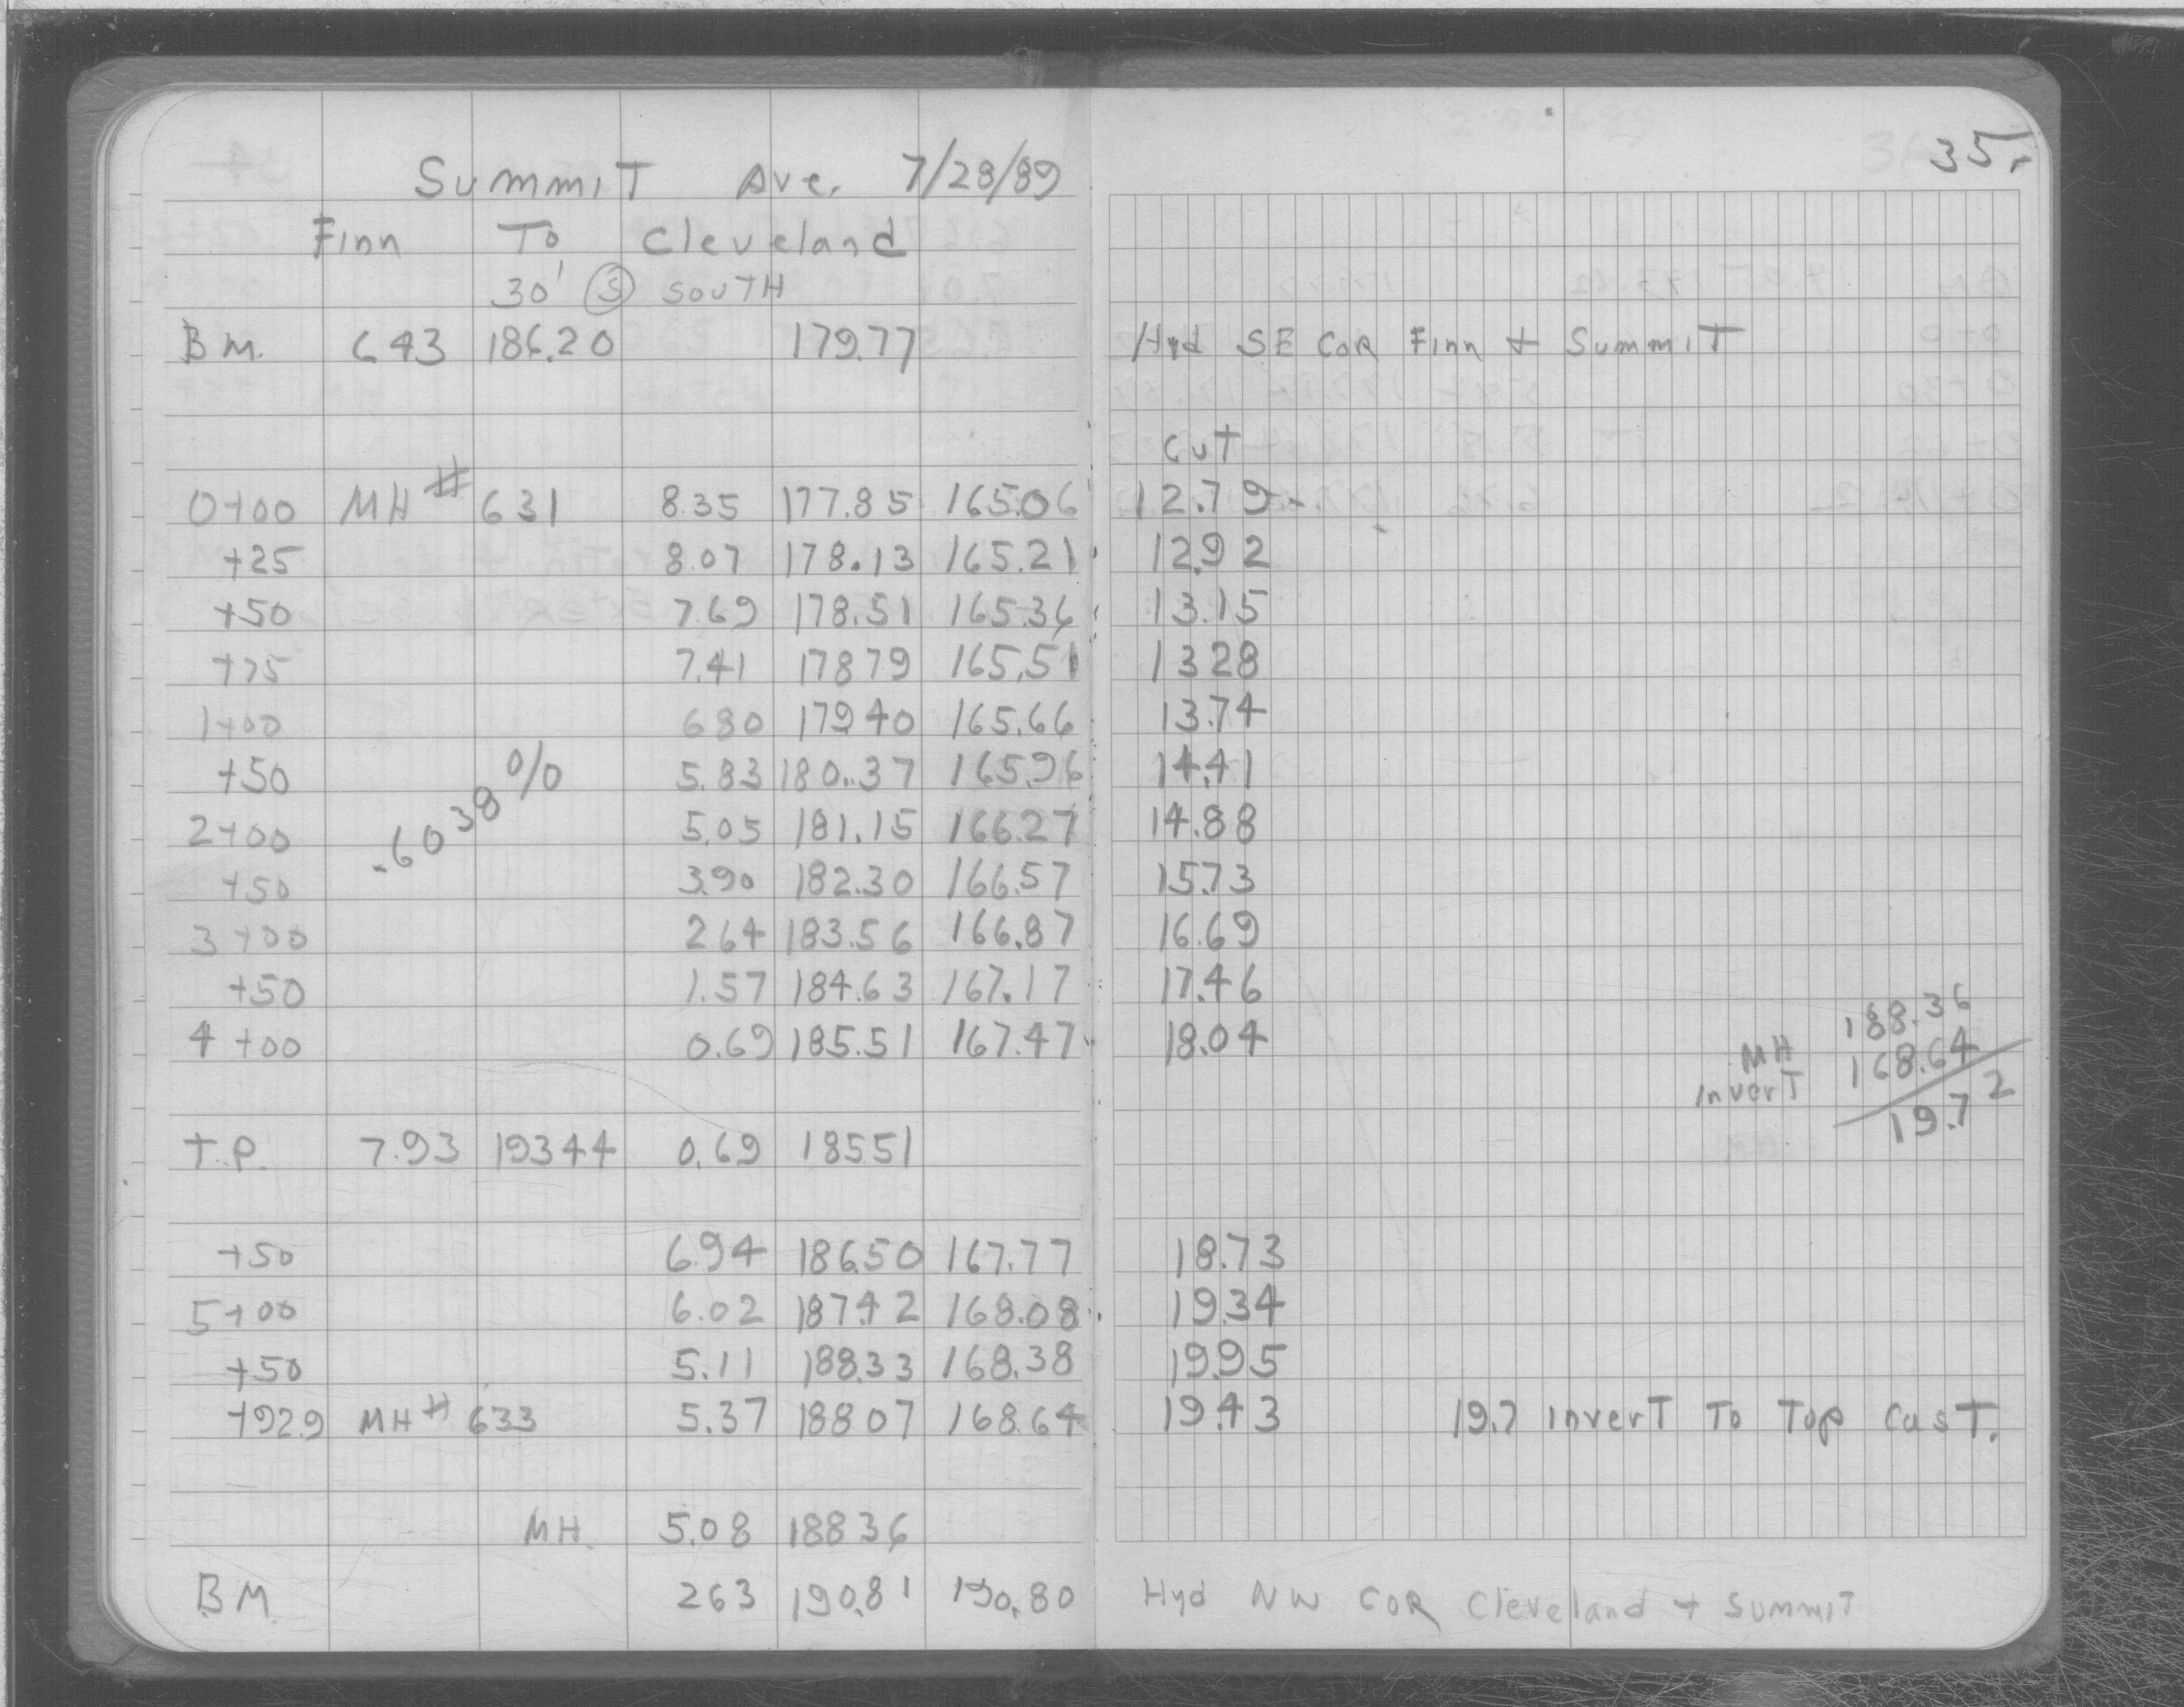 35.
Summit Ave. 7/28/89
Finn To Cleveland
30' S South
B M. 6 43 186.20 179.77 Hyd SE COR Finn + Summit
Cut
0+00 MH # 631 8.35 177.85 165.06 12.79
+25 8.07 178.13 165.21 12.92
+50 7.69 178.51 165.36 13.15
+75 7.41 178 79 165.51 13 28
1+00 6 80 179 40 165.66 13.74
+50 5.83 180.37 165.96 14.41
.6038 %
2+00 5.05 181.15 166.27 14.88
+50 3.90 182.30 166.57 15.73
3+00 2 64 183.56 166.87 16.69
+50 1.57 184.63 167.17 17.46
4+00 0.69 185.51 167.47 18.04
188.36
MH Invert 168.64
19.72
T.P. 7.93 193 44 0.69 185 51
+50 6.94 186.50 167.77 18.73
5+00 6.02 187.42 168.08 19.34
+50 5.11 188.33 168.38 19.95
+92.9 MH # 633 5.37 188 07 168.64 19.43 19.7 Invert To Top Cast.
MH. 5.08 188 36
B M. 2 63 190.81 190.80 Hyd NW COR Cleveland + Summit